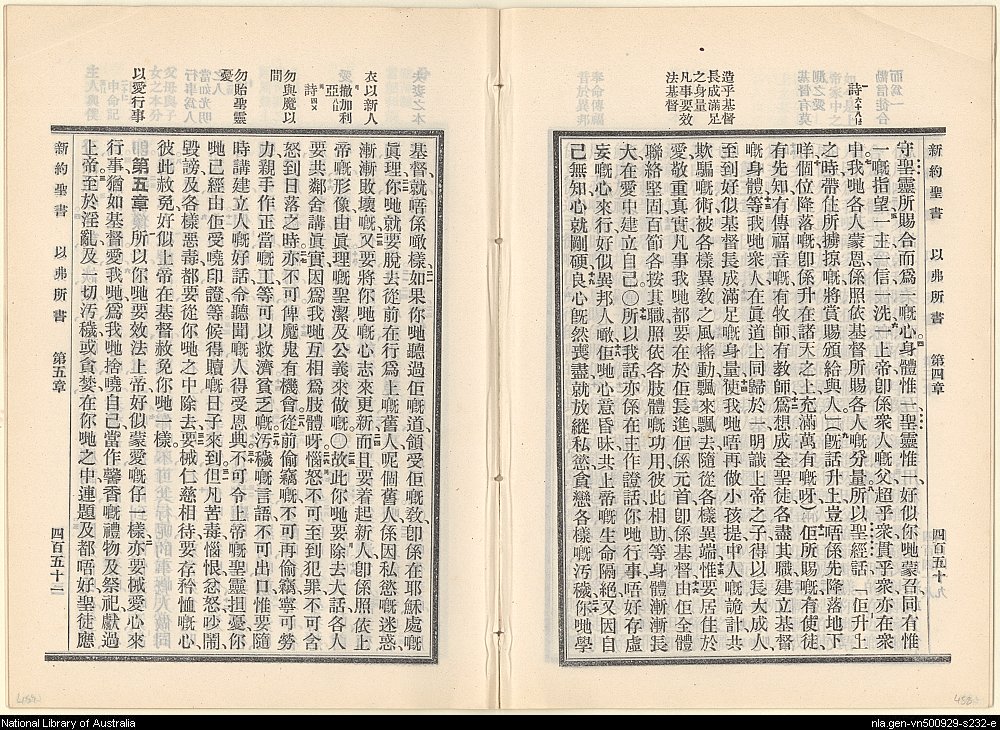 新約聖書 以弗所書 第四章
詩六十八之十八
造乎基督
長成滿足
之身量
凡事要效
法基督
守聖靈所賜合而爲一嘅心身體惟一聖靈惟一好似你哋蒙召同有惟
一嘅指望一主一信一洗一上帝卽係衆人嘅父超乎衆貫乎衆亦在衆
中我哋各人蒙恩係照依基督所賜各人嘅分量所以聖經話「佢升上
之時帶住所擄掠嘅將賞賜頒給與人」(旣話升上豈唔係先降落地下
咩個位降落嘅卽係升在諸天之上充滿萬有嘅呀)佢所賜嘅有使徒
有先知有傳福音嘅有牧師有教師爲想成全聖徒各盡其職建立基督
嘅身體等我哋衆人在眞道上同歸於一明識上帝之子得以長大成人
至到好似基督長成滿足嘅身量使我哋唔再做小孩提中人嘅詭計共
欺騙嘅術被各樣異敎之風搖動飄來飄去隨從各樣異端惟要居住於
愛敬重眞實凡事我哋都要在於佢長進佢係元首卽係基督由佢全體
聯絡堅固百節各按其職照依各肢體嘅功用彼此相助等身體漸漸長
大在愛中建立自己○所以我話亦係在主作證話你哋行事唔好存虛
妄嘅心來行好似異邦人噉佢哋心意昏昧共上帝嘅生命隔絕又因自
己無知心就剛硬良心旣然喪盡就放縱私慾貪戀各樣嘅汚穢你哋學
衣以新人
亞八之十六
撤加利
詩四之四
勿與魔以
間
勿貽聖靈
憂
以愛行事
基督就唔係噉樣如果你哋聽過佢嘅道領受佢嘅敎卽係在耶穌處嘅
眞理你哋就要脫去從前在行爲上嘅舊人呢個舊人係因私慾嘅迷惑
漸漸敗壞嘅又要將你哋嘅心志來更新而且要着起新人卽係照依上
帝嘅形像由眞理嘅聖潔及公義來做嘅○故此你哋要除去大話各人
要共鄰舍講眞實因爲我哋互相爲肢體呀惱怒不可至到犯罪不可含
怒到日落之時亦不可俾魔鬼有機會從前偷竊嘅不可再偷竊寧可勞
力親手作正當嘅工等可以救濟貧乏嘅汚穢嘅言語不可出口惟要隨
時講建立人嘅好話令聽聞嘅人得受恩典不可令上帝嘅聖靈担憂你
哋已經由佢受曉印證等候得贖嘅日子來到但凡苦毒惱恨忿怒吵鬧
毀謗及各樣惡毒都要從你哋之中除去要械仁慈相待要存矜恤嘅心
彼此赦免好似上帝在基督赦免你哋一樣
第五章 所以你哋要效法上帝好似蒙愛嘅仔一樣亦要械愛心來
行事猶如基督愛我哋爲我哋捨曉自己當作馨香嘅禮物及祭祀獻過
上帝至於淫亂及一切汚穢或貪婪在你哋之中連題及都唔好聖徒應
新約聖書 以弗所書 第五章 四百五十二
National Library of Australia
nla.gen-vn500929-s232-e